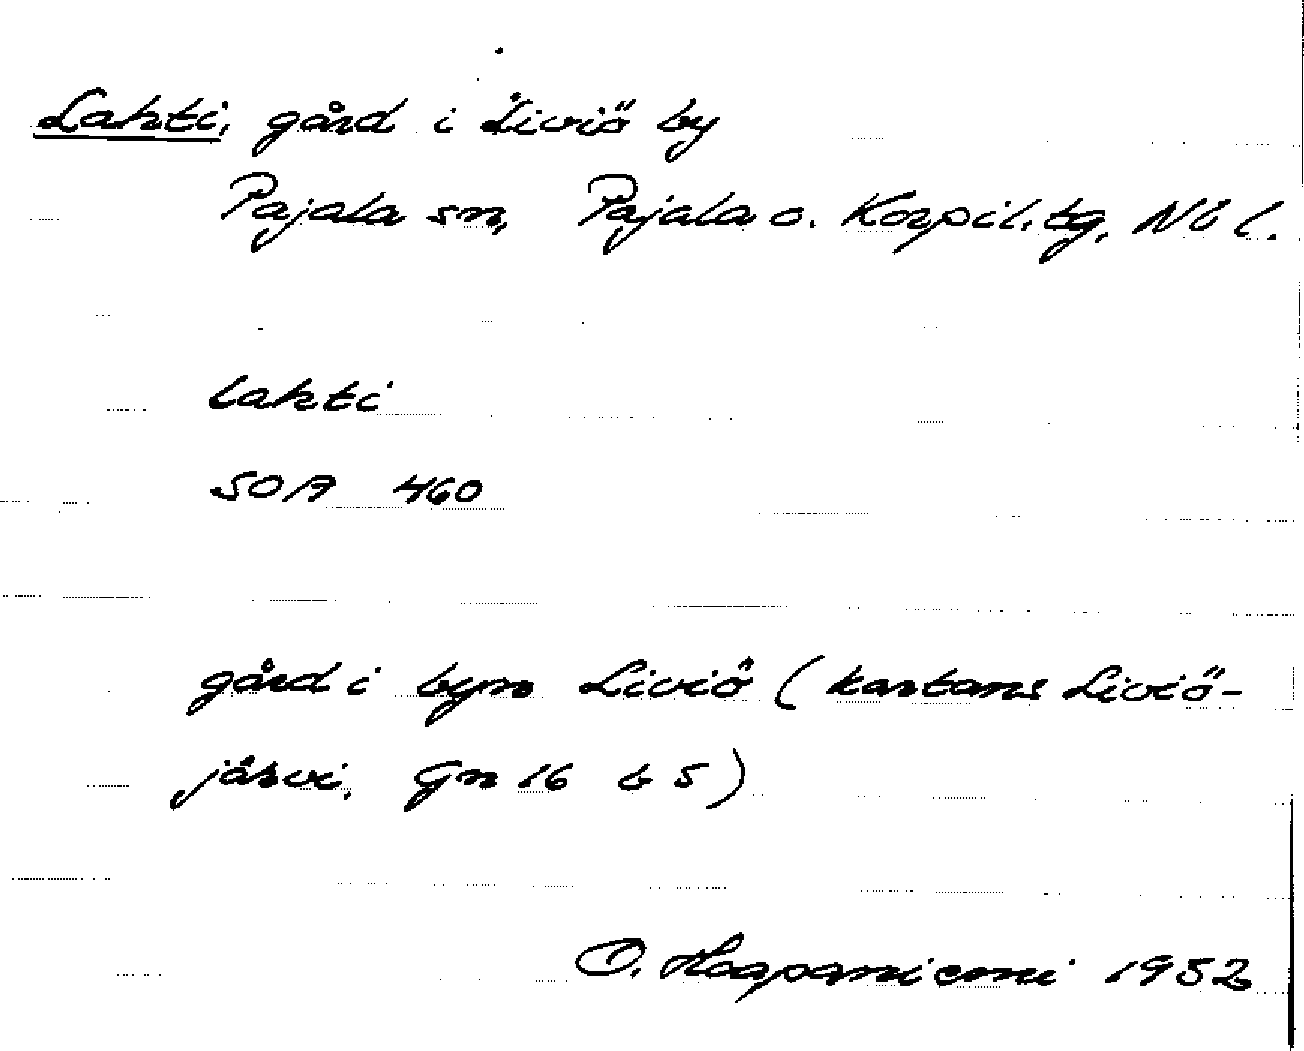 Lahti, gård i Liviö by
Pajala sn, Pajala o. Korpil. tg, Nb l.
lahti
SOA 460
gård i byn Liviö (kartans Liviö-
järvi, Gn 16 b 5)
O. Haapaniemi 1952